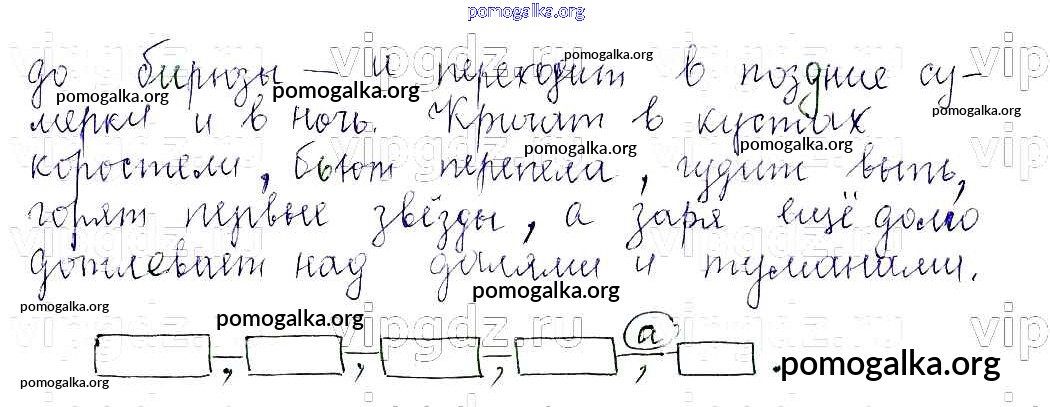 pomogalka.org
vipgdz.ru vipgdz.ru vipgdz.ru vip
pomogalka.org
до бирюзы – и переходит в поздние су-
pomogalka.org pomogalka.org pomogalka.org
мерки и в ночь. Кричат в кустах
pomogalka.org pomogalka.org
коростели, бьют перепела, гудит выпь,
горят первые звёзды, а заря ещё долго
дотлевает над далями и туманами.
pomogalka.org
pomogalka.org pomogalka.org
а
, , , , .
pomogalka.org
pomogalka.org